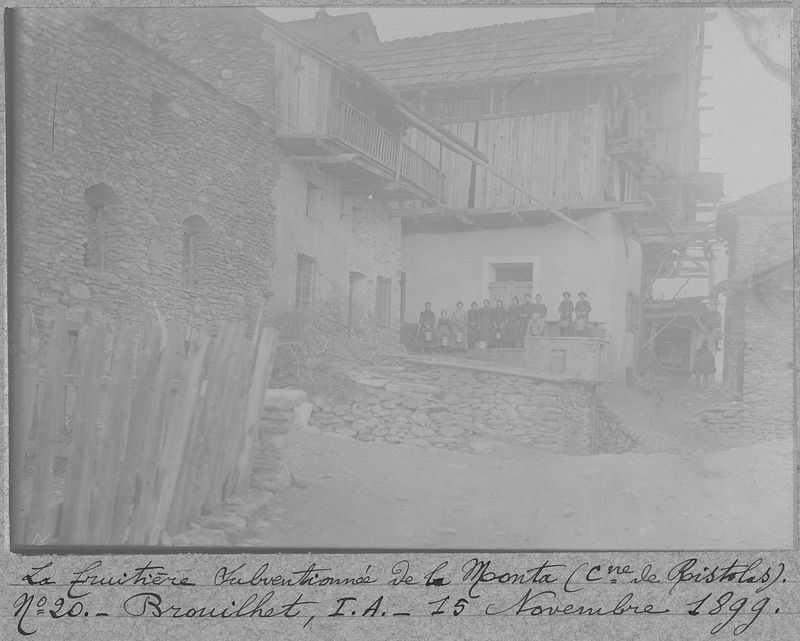 La fruitière Subventionnée de la Monta (Cne de Ristolas).
No 20. - Brouilhet, I.A. - 15 Novembre 1899.